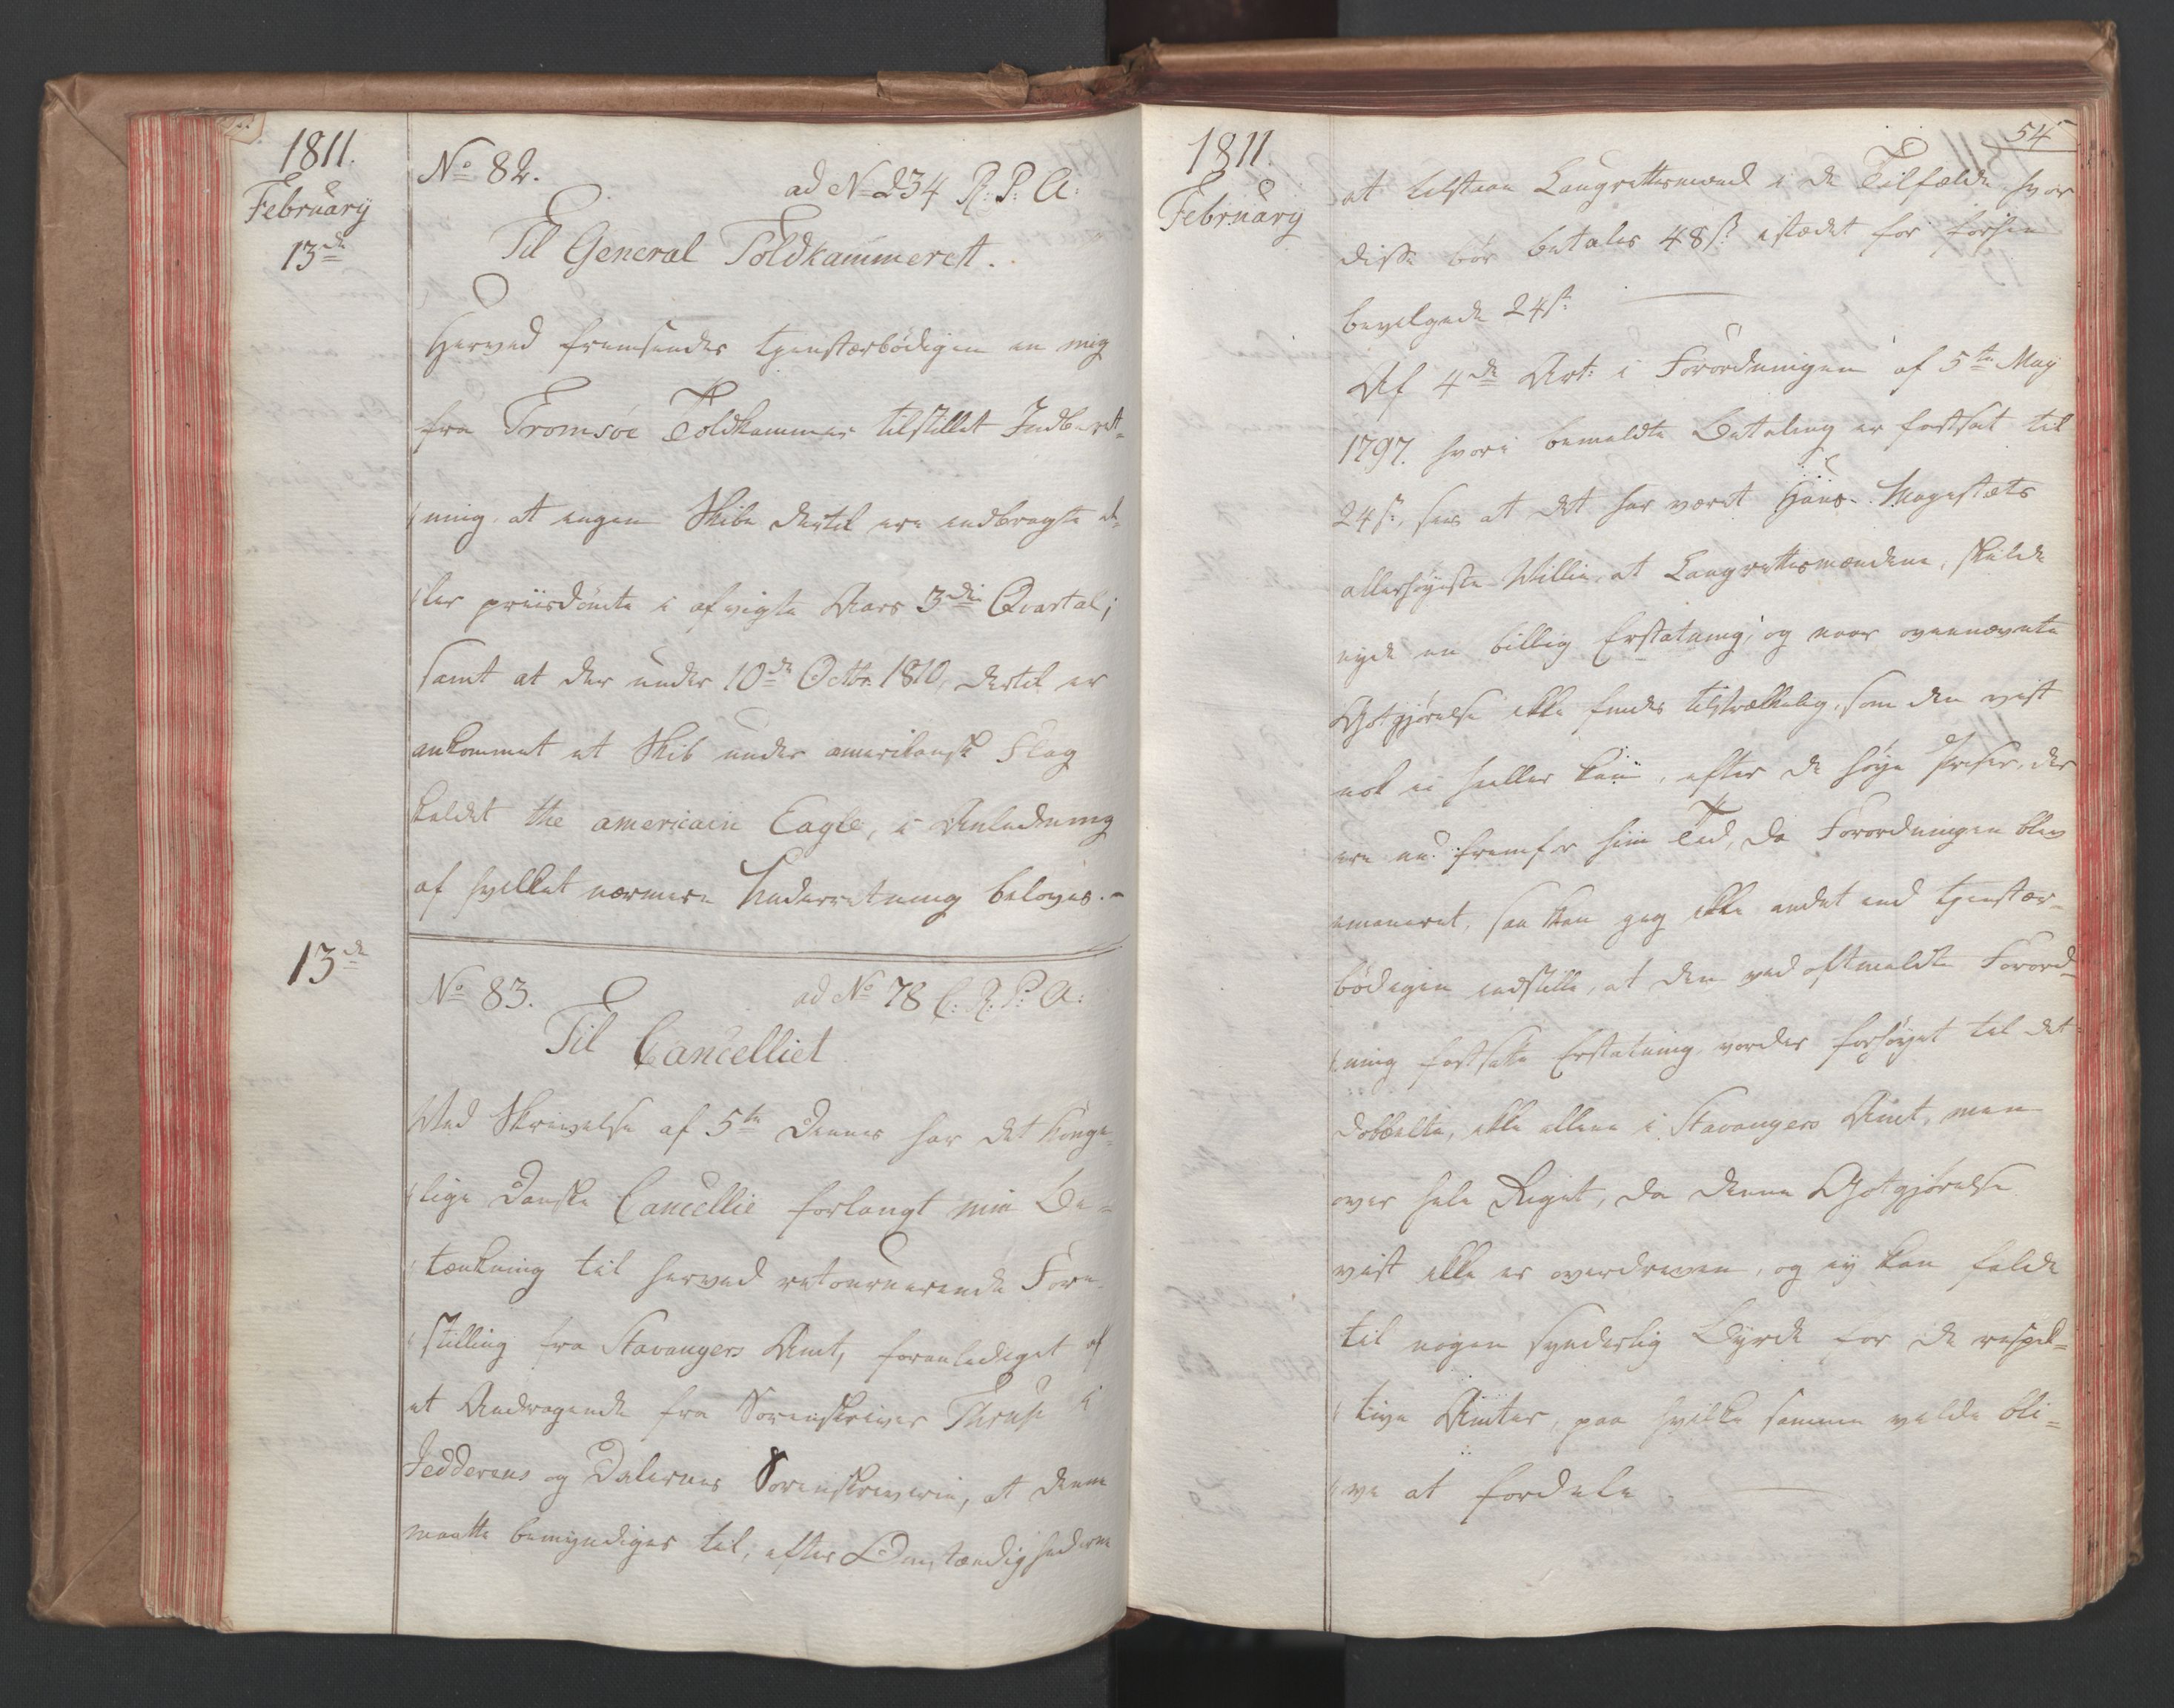 1811.
February
13de
No 82.
ad No 234 R: P: A:
Til General Toldkammeret.
Herved fremsendes tjenstærbødigen en mig
fra Tromsøe Toldkammer tilstillet Indberet-
ning, at ingen Skibe dertil ere indbragte el-
ler priisdömte i afvigte Aars 3die Qvartal;
samt at der under 10de Octbr. 1810, dertil er
ankommet et Skib under amerikansk Flag
kaldet the americain Eagle, i Anledning
af hvilket nærmere Underretning beloves.-
13de
No 83.
ad No 78 C: R: P: A:
Til Cancelliet
Ved Skrivelse af 5te Dennes har det konge-
lige Danske Cancellie forlangt min Be-
tænkning til herved retournerende Fore-
stilling fra Stavangers Amt, foranlediget af
et Andragende fra Sorenskriver Thrup i
Jedderens og Dalernes Sorenskriverie, at denne
maatte bemyndiges til, efter Omstændighederne
54
1811.
February
at tilstaae Laugrettesmænd i de Tilfælde hvor
disse bør betales 48 s. istædet for forhen
bevilgede 24 s.
Af 4de Art: i Forordningen af 5te May
1797. hvori bemeldte Betaling er fastsat til
24 s, sees at det har været Hans Magestæts
allerhøyeste Villie, at Laugrettesmændene, skulde
nyde en billig Erstatning; og naar ovennævnte
Godtgjørelse ikke findes tilstrækkelig, som den vist
nok ei heller kan, efter de høye Priser, der
ere nu fremfor hiin Tid, da Forordningen blev
emaneret, saa kan jeg ikke andet end tjenstær-
bødigen indstille, at den ved oftmeldte Forord-
ning fastsatte Erstatning, vorder forhöyet til det
dobbelte, ikke allene i Stavangers Amt, men
over hele Riget, da denne Godtgjörelse
vist ikke er overdreven, og ey kan falde
til nogen synderlig Byrde for de respek-
tive Amter, paa hvilke samme vilde bli-
ve at fordele